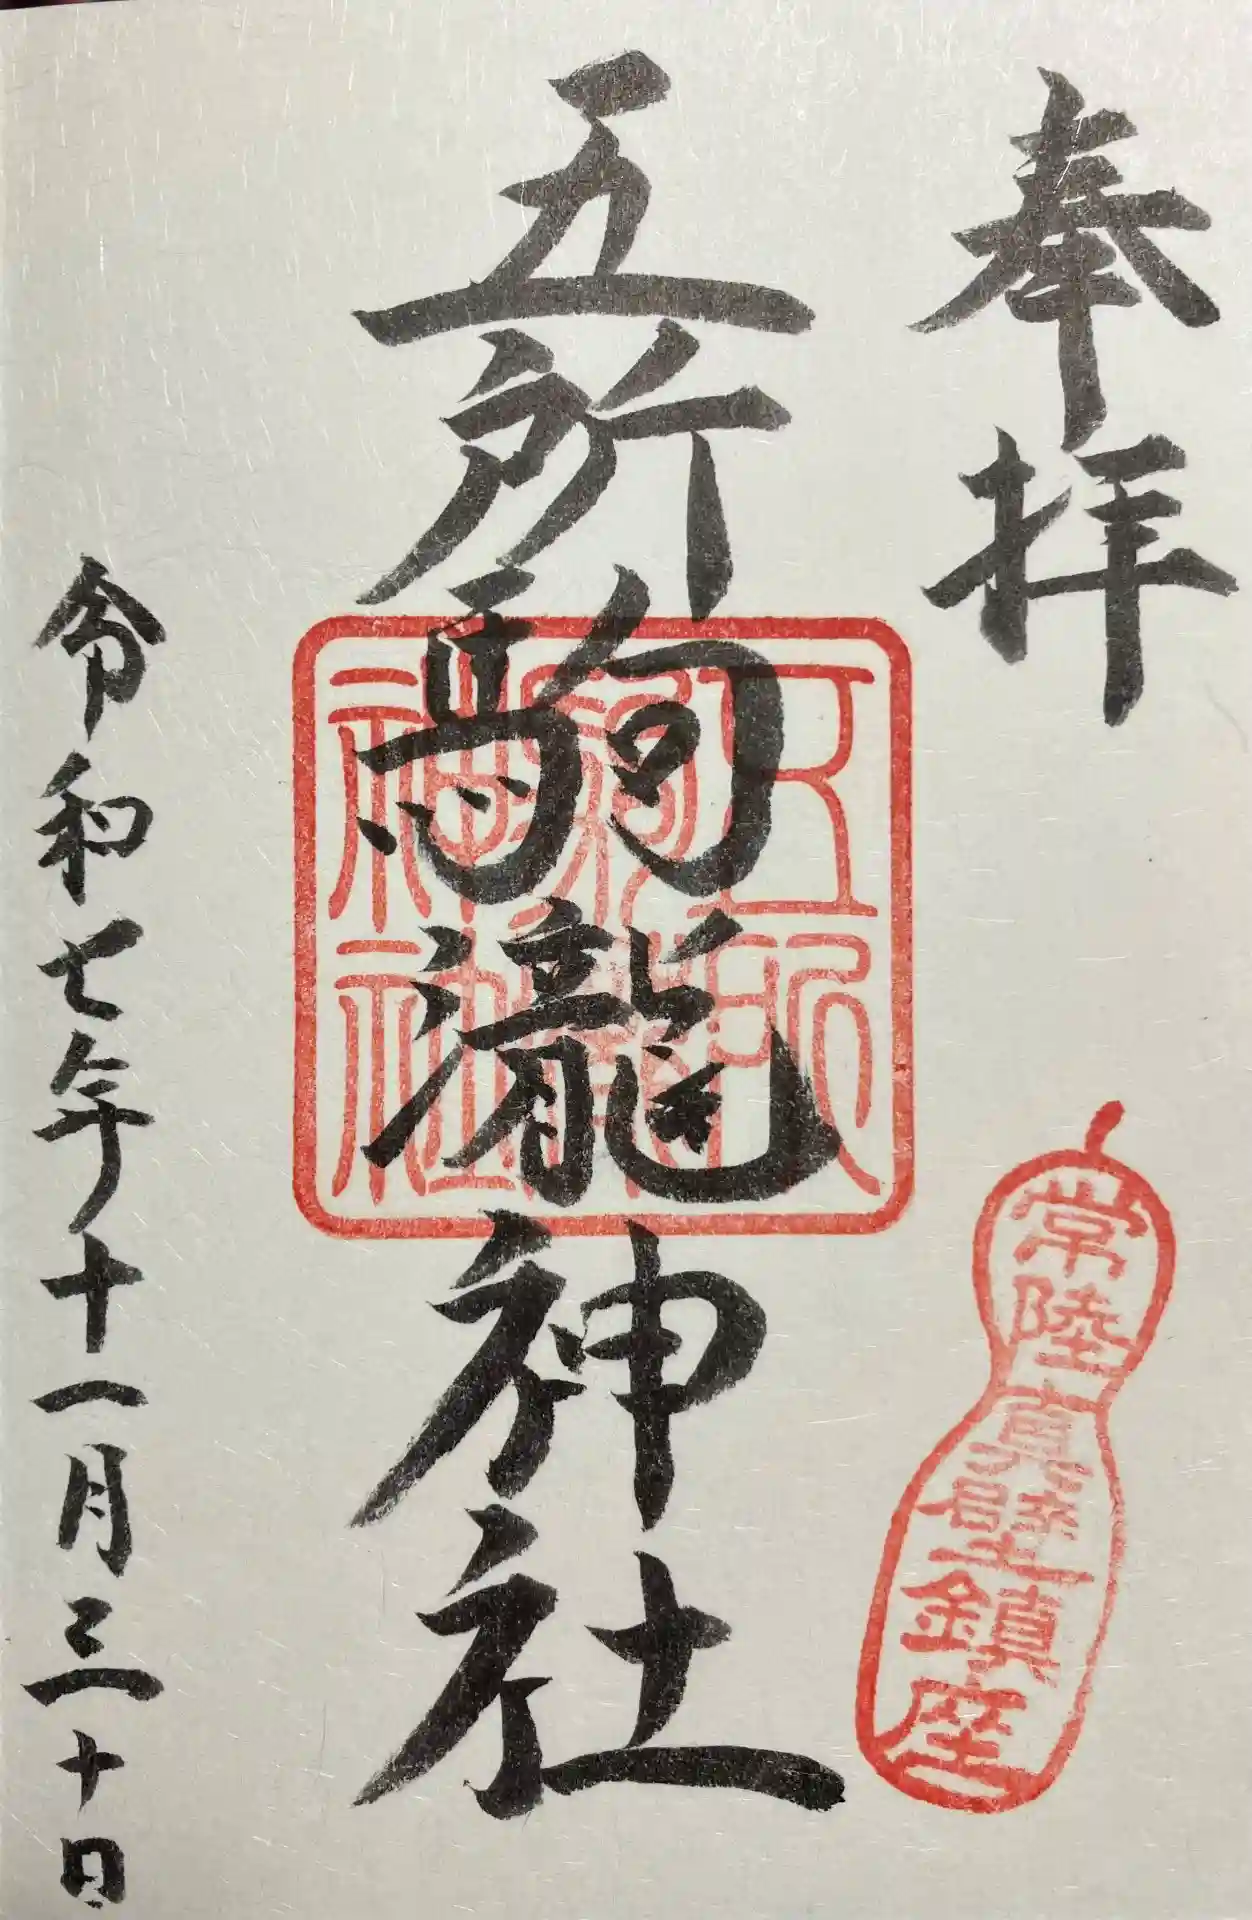 奉拝
常陸真壁鎮座
五所駒瀧神社
五所駒瀧神社
令和七年十一月三十日